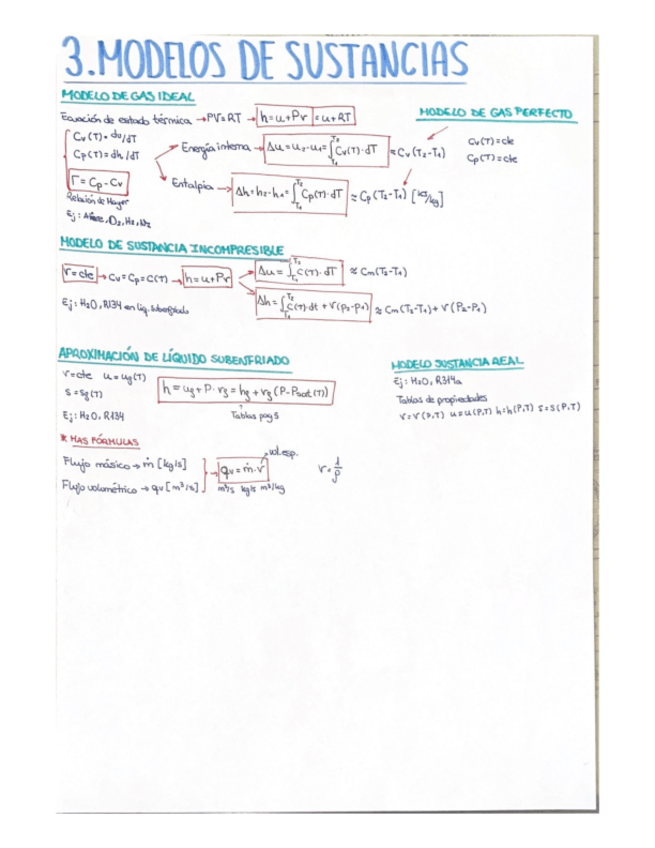 3. MODELOS DE SUSTANCIAS
MODELO DE GAS IDEAL
Ecuación de estado térmica → PV=RT → h=u+Pv = u+RT
MODELO DE GAS PERFECTO
Cv(T)=cte
Cp(T)=cte
Cv(T)= du/dT
Cp(T)= dh/dT
r = Cp - Cv
Relación de Mayer
Ej: Aire, O₂, H₂, N₂
Energía interna → Δu = u₂-u₁ = ∫_T₁^T₂ Cv(T)·dT ≈ Cv(T₂-T₁)
Entalpía → Δh = h₂-h₁ = ∫_T₁^T₂ Cp(T)·dT ≈ Cp(T₂-T₁) [kJ/kg]
MODELO DE SUSTANCIA INCOMPRESIBLE
V=cte → Cv=Cp=C(T) → h=u+Pv
Δu = ∫_T₁^T₂ C(T)·dT ≈ Cm(T₂-T₁)
Δh = ∫_T₁^T₂ C(T)·dt + V(P₂-P₁) ≈ Cm(T₂-T₁) + V(P₂-P₁)
Ej: H₂O, R134 en líq. subenfriado
APROXIMACIÓN DE LÍQUIDO SUBENFRIADO
V=cte u=uf(T)
s=sf(T)
h = uf + P·vf = hf + vf(P-Psat(T))
Ej: H₂O, R134
Tablas pag 5
MODELO SUSTANCIA REAL
Ej: H₂O, R314a
Tablas de propiedades
V=V(P,T) u=u(P,T) h=h(P,T) s=s(P,T)
* MAS FÓRMULAS
Flujo másico → ṁ [kg/s]
Flujo volumétrico → qv [m³/s]
qv = ṁ·v
vol. esp.
m³/s kg/s m³/kg
V = 1/ρ